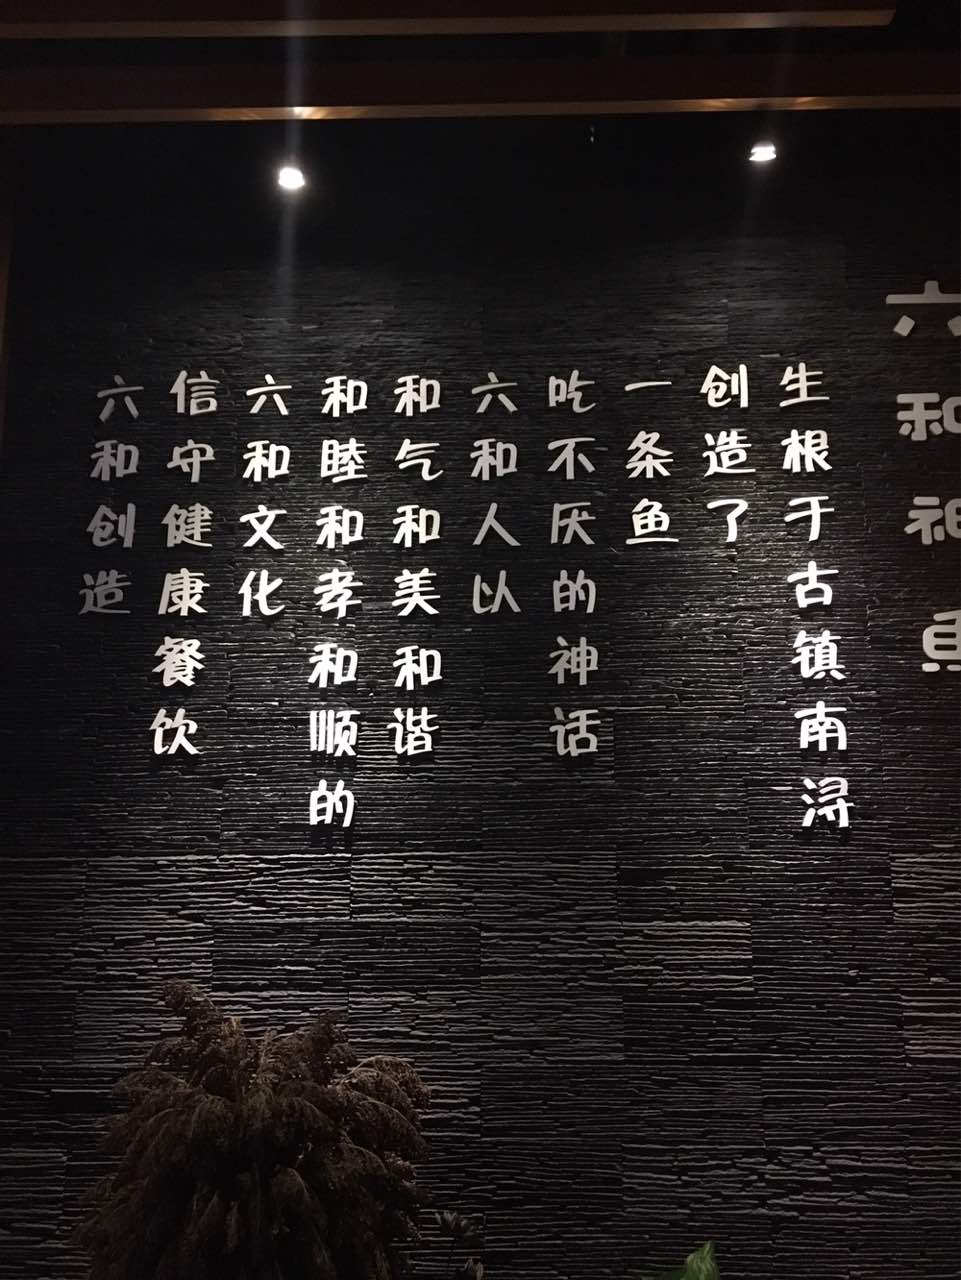 六和神鱼
生根于古镇南浔
创造了
一条鱼
吃不厌的神话
六和人以
和气和美和谐
和睦和孝和顺的
六和文化
信守健康餐饮
六和创造